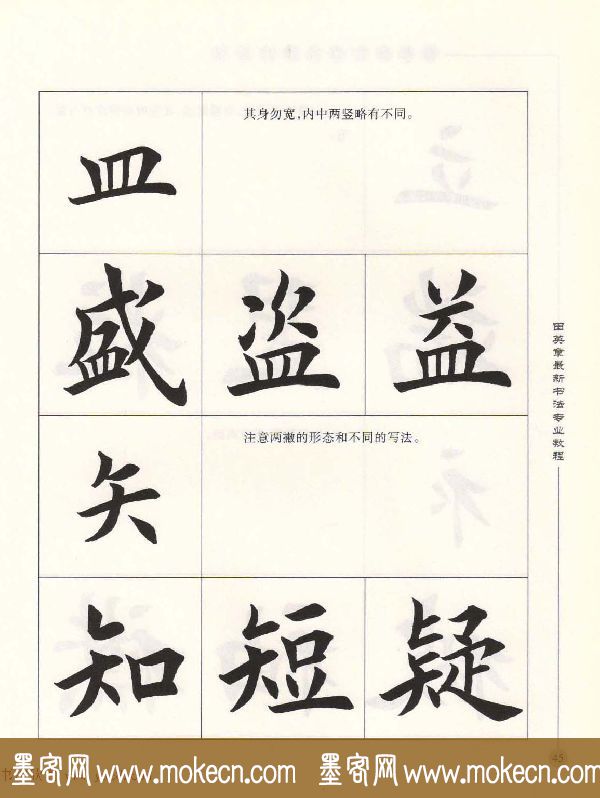 其身勿宽,内中两竖略有不同。
皿
盛 盗 益
田英章最新书法专业教程
注意两撇的形态和不同的写法。
矢
知 短 疑
45
墨客网 www.mokecn.com 墨客网 www.mokecn.com